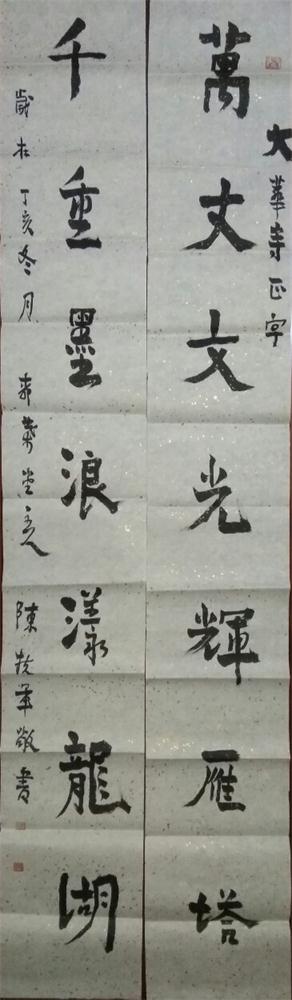 大華寺正字
萬丈文光輝雁塔
千重墨浪漾龍湖
歲在丁亥冬月
陳 敬書